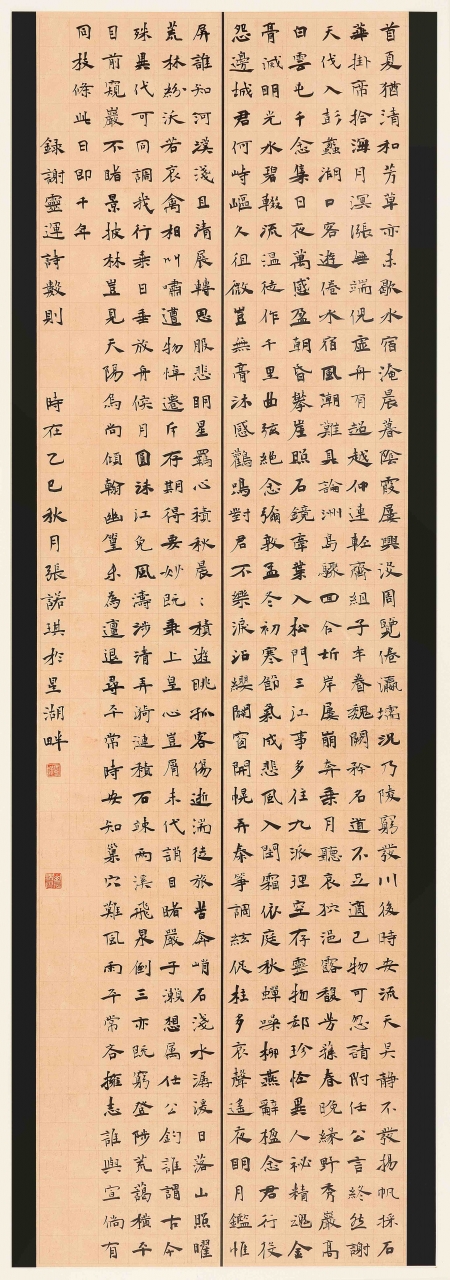 首夏猶清和芳草亦未歇水宿淹晨暮陰霞屢興沒周覽倦瀛壖況乃陵窮發川後時安流天吳靜不發揚帆採石
華掛席拾海月溟漲無端倪虛舟有超越仲連輕齊組子牟眷魏闕矜名道不足適己物可忽請附任公言終然謝
天伐入彭蠡湖口客遊倦水宿風潮難具論洲島驟回合圻岸屢崩奔乘月聽哀狖浥露馥芳蓀春晚綠野秀巖高
白雲屯千念集日夜萬感盈朝昏攀崖照石鏡牽葉入松門三江事多往九派理空存靈物郄珍怪異人祕精魂金
膏滅明光水碧輟流溫徒作千里曲弦絕念彌敦孟冬初寒節氣成悲風入閨霜依庭秋蟬噪柳燕辭楹念君行役
怨邊城君何崎嶇久徂豈無膏沐感鸛鳴對君不樂淚沾纓闢窗開幌弄秦箏調絃促柱多哀聲遙夜明月鑑帷
屏誰知河漢淺且清展轉思服悲明星羈心積秋晨：積遊眺孤客傷逝湍徒旅苦奔峭石淺水潺湲日落山照曜
荒林紛沃若哀禽相叫嘯遭物悼遷斥存期得要妙既秉上皇心豈屑末代誚目睹嚴子瀨想屬任公釣誰謂古今
殊異代可同調我行乘日垂放舟候月圓沫江免風濤涉清弄漪漣積石竦兩溪飛泉倒三亦既窮登陟荒藹橫平
目前窺巖不睹景披林豈見天陽烏尚傾翰幽篁未為邅退尋平常時安知巢穴難風雨平常各擁志誰與宣倘有
同枝條此日即千年
錄謝靈運詩數則 時在乙巳秋月張諾琪於星湖畔